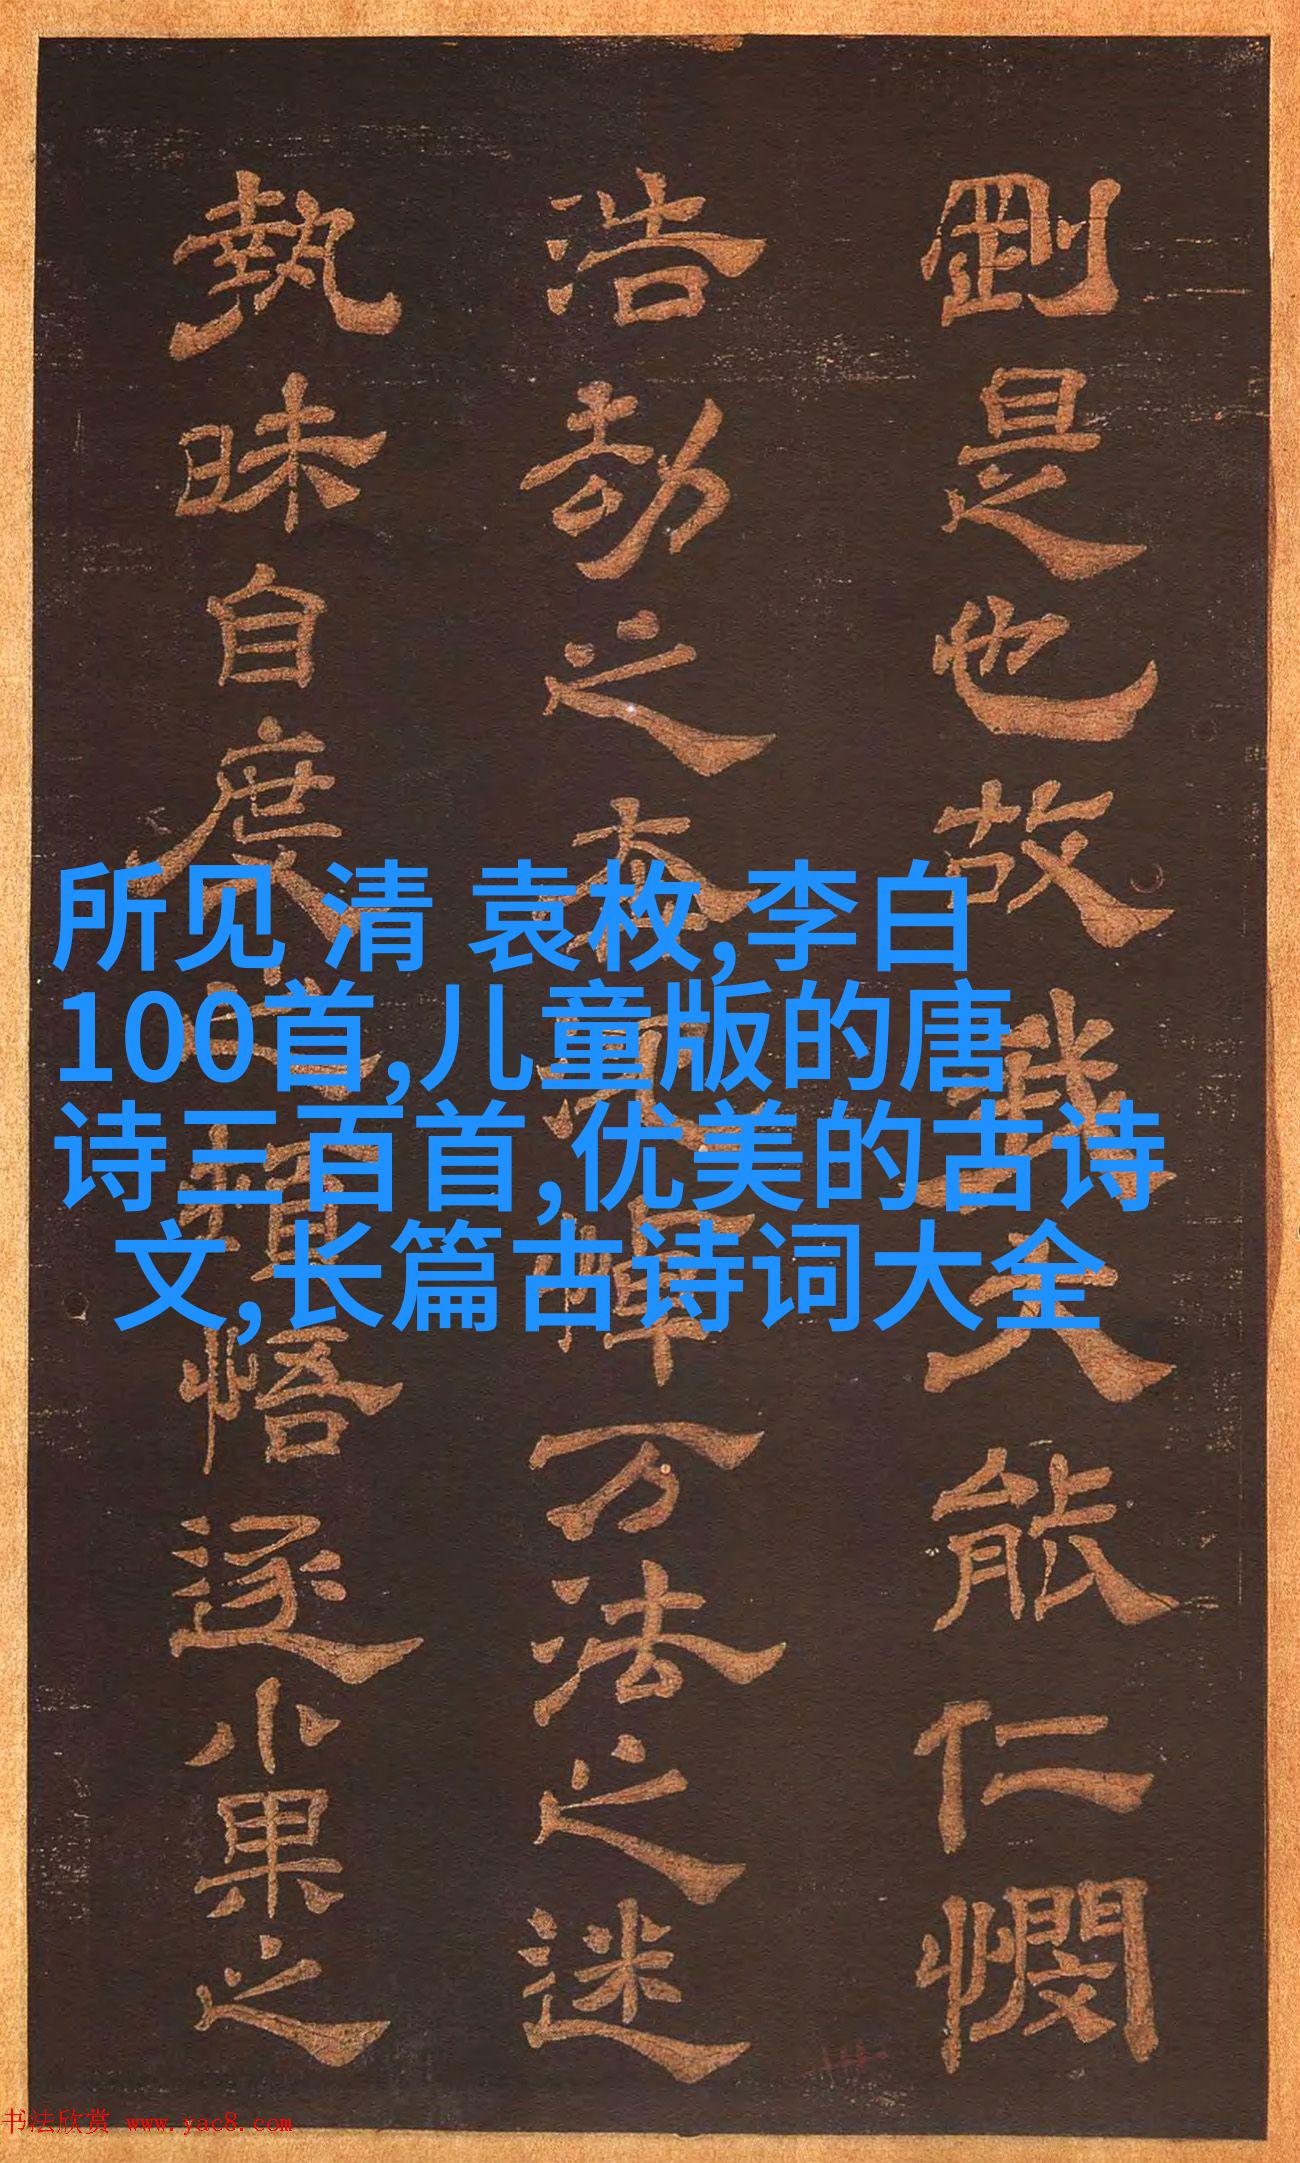 剛是也故我大能仁憫
浩劫之万法之迷
執昧自度悟逐小果之
所见 清 袁枚,李白
100首,儿童版的唐
诗三百首,优美的古诗
文,长篇古诗词大全
书法欣赏 www.yac8.com